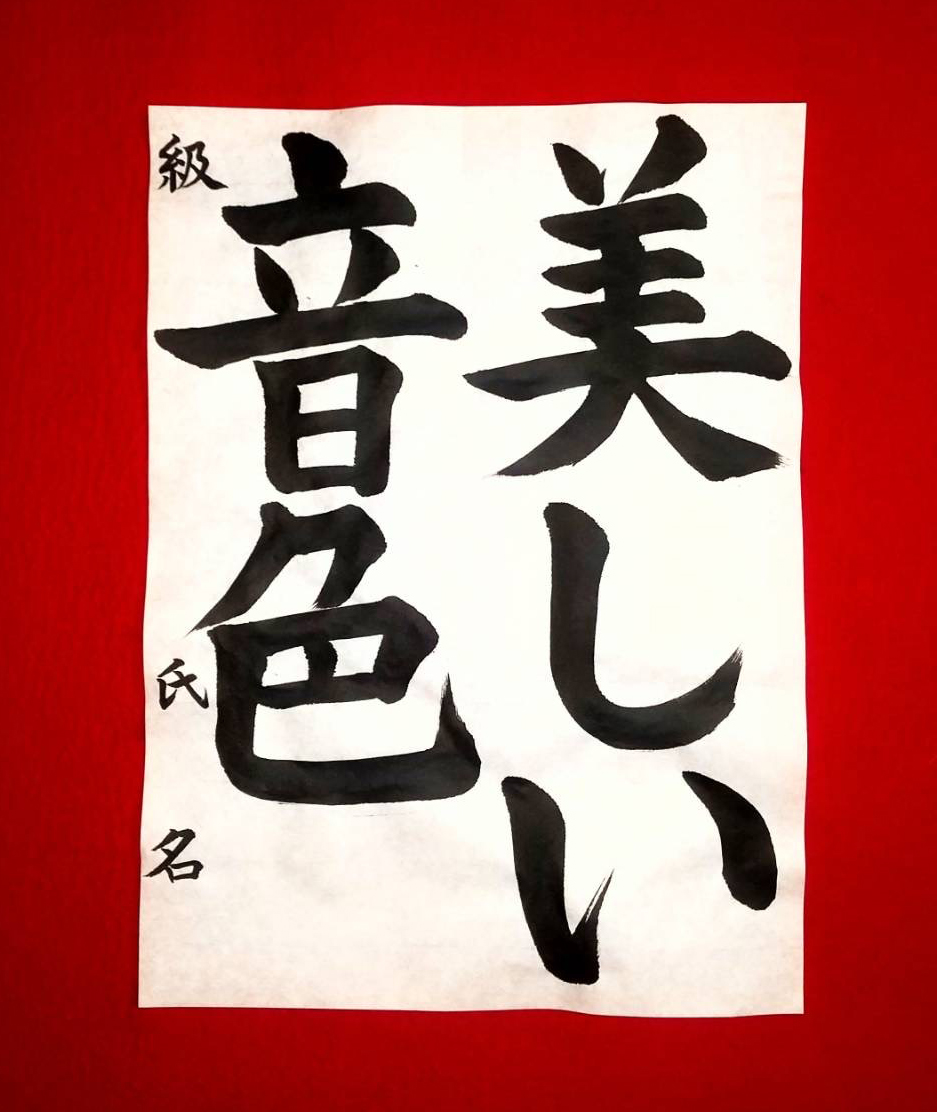 美しい
音色
級 氏 名